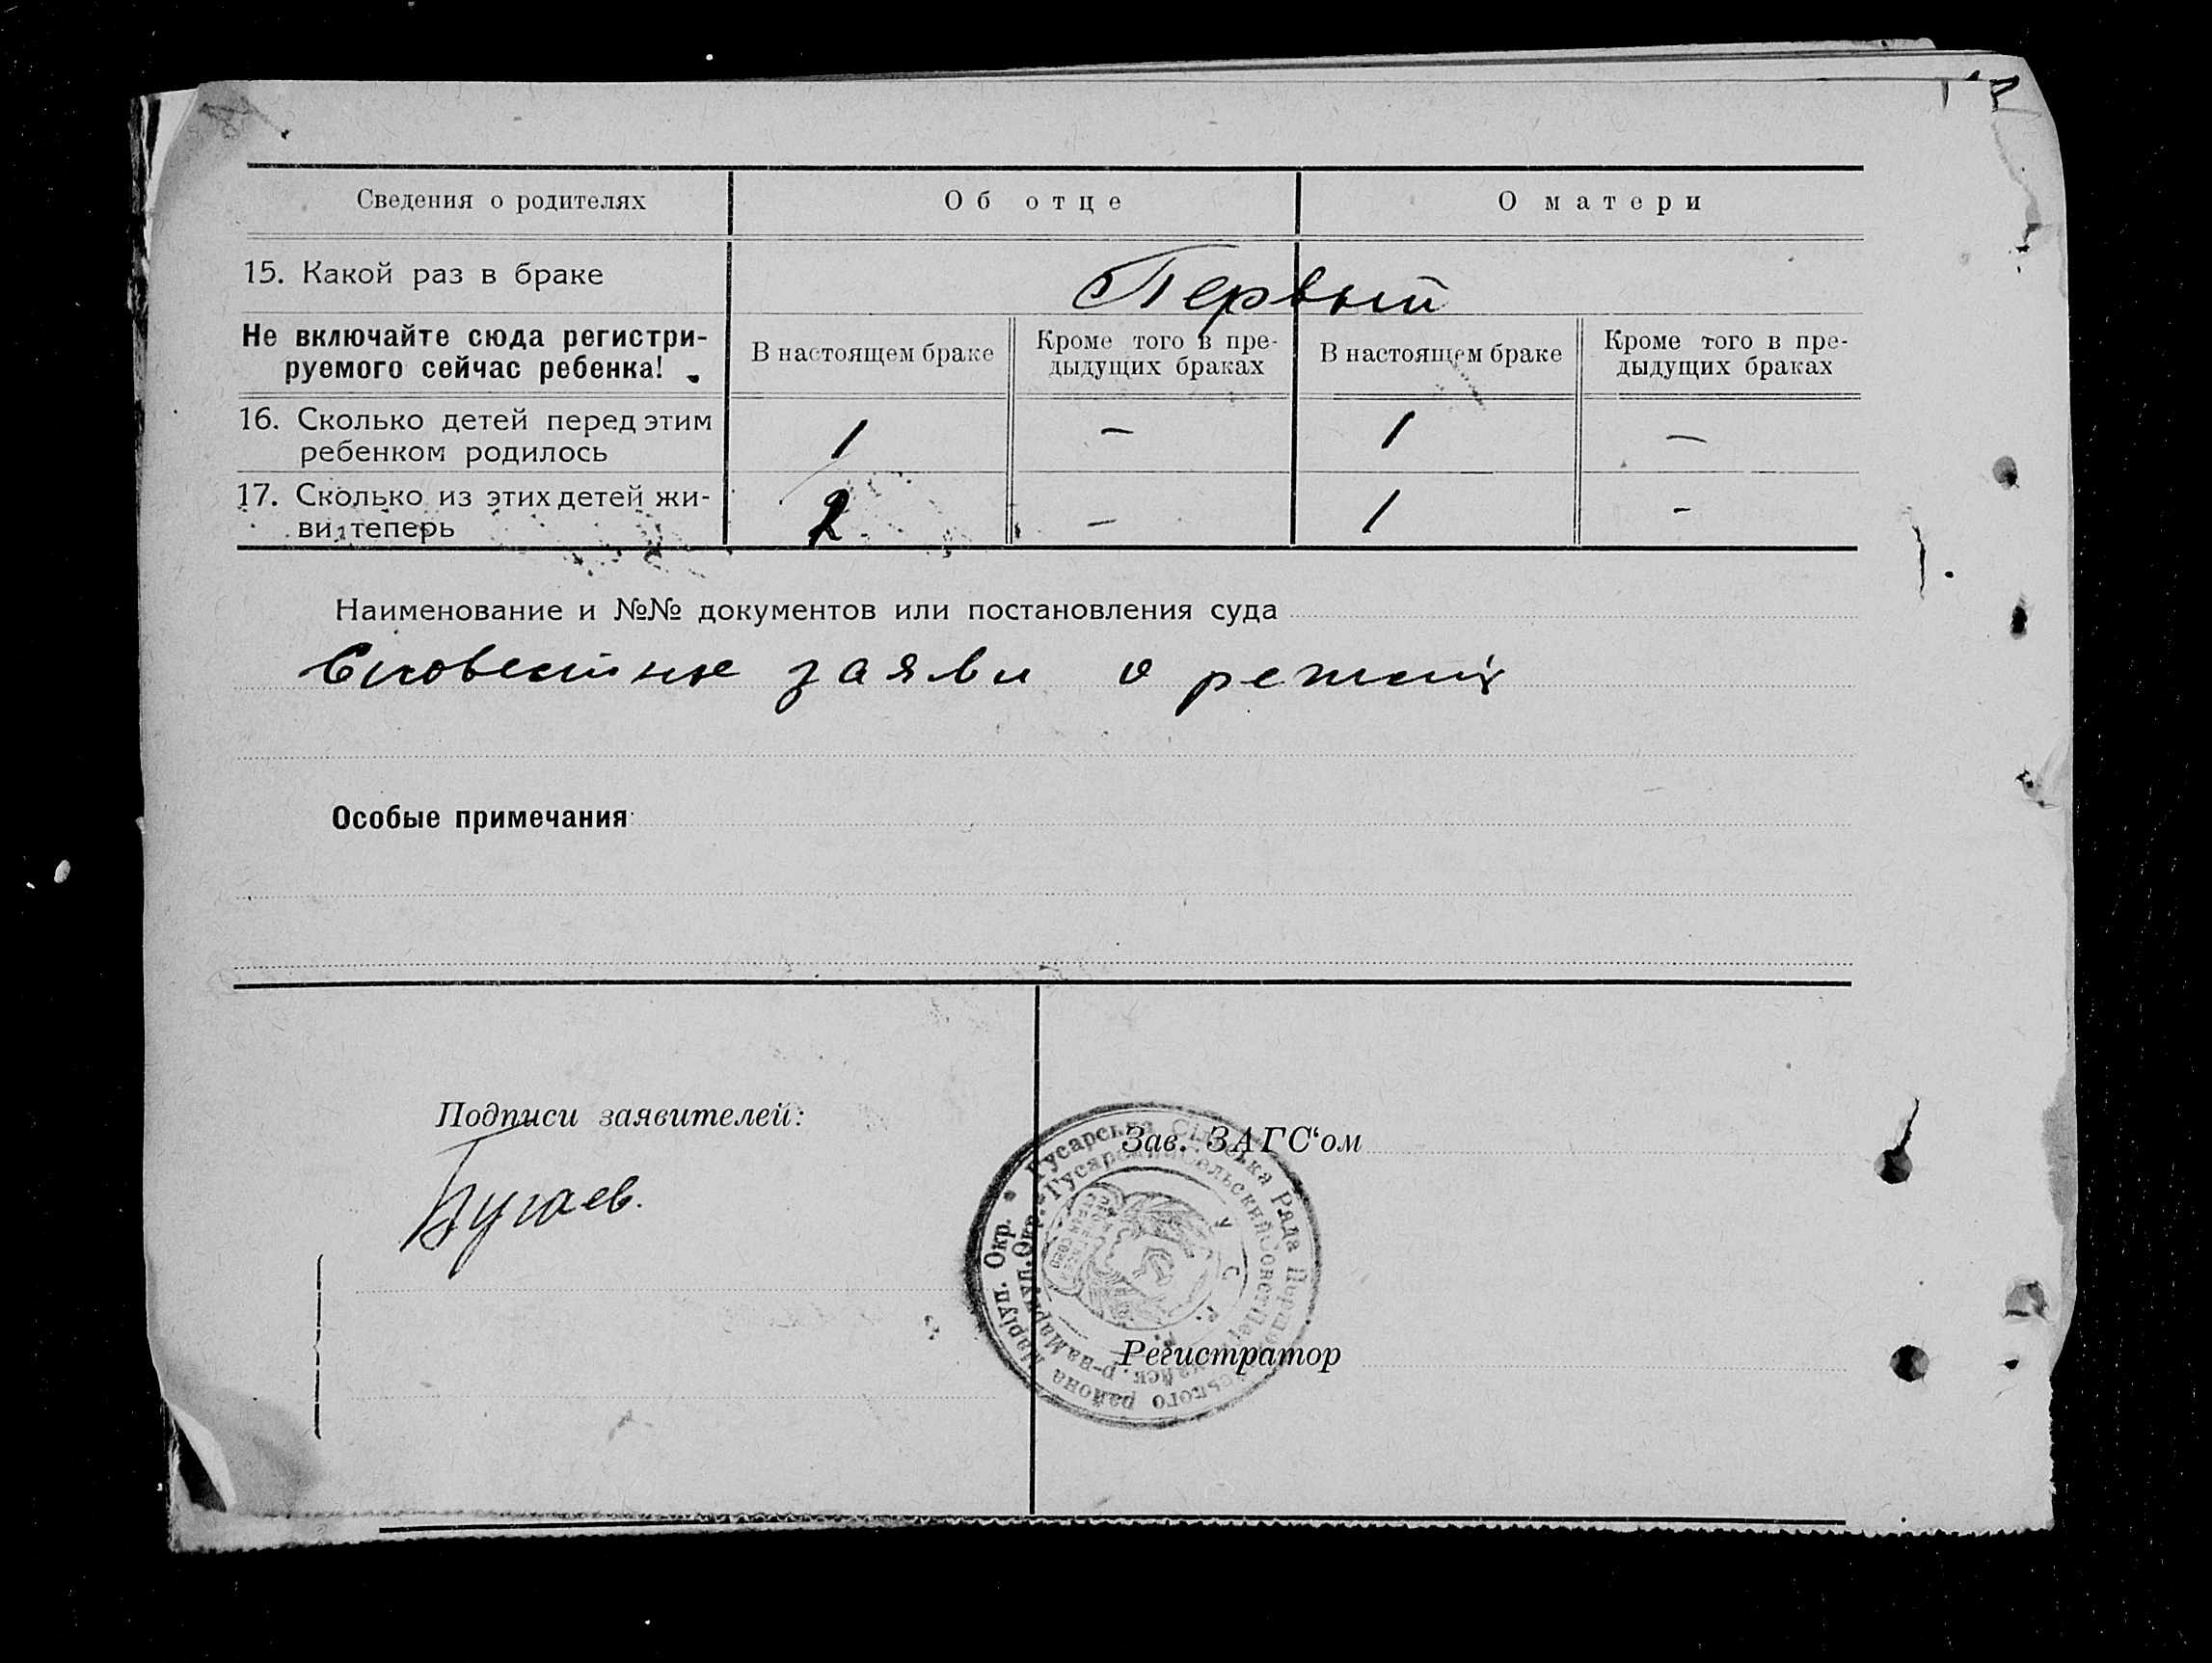 Сведения о родителях
Об отце
О матери
15. Какой раз в браке
Первый
Не включайте сюда регистри-
руемого сейчас ребенка!
В настоящем браке
Кроме того в пре-
дыдущих браках
В настоящем браке
Кроме того в пре-
дыдущих браках
16. Сколько детей перед этим
ребенком родилось
1
–
1
–
17. Сколько из этих детей жи-
ви теперь
2
–
1
-
Наименование и №№ документов или постановления суда
заяви о
Особые примечания
Подписи заявителей:
Зав. ЗАГС‘ом
Регистратор
Гусарська Сільська Рада
района Маріуп. Окр.